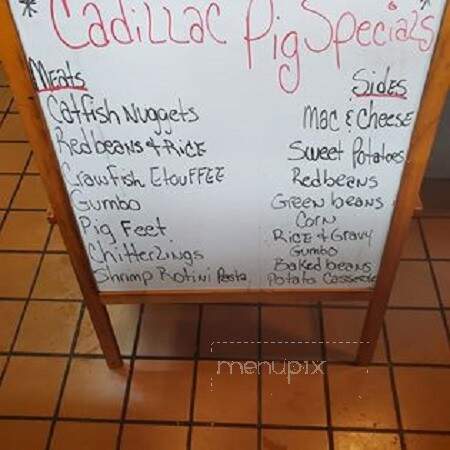 * Cadillac Pig Specials *
Meats
Catfish Nuggets
Redbeans & Rice
Crawfish Etouffee
Gumbo
Pig Feet
Chitterlings
Shrimp Rotini Pasta
Sides
Mac & Cheese
Sweet Potatoes
Redbeans
Green beans
Corn
Rice & Gravy
Gumbo
Baked beans
Potato Casserole
menupix